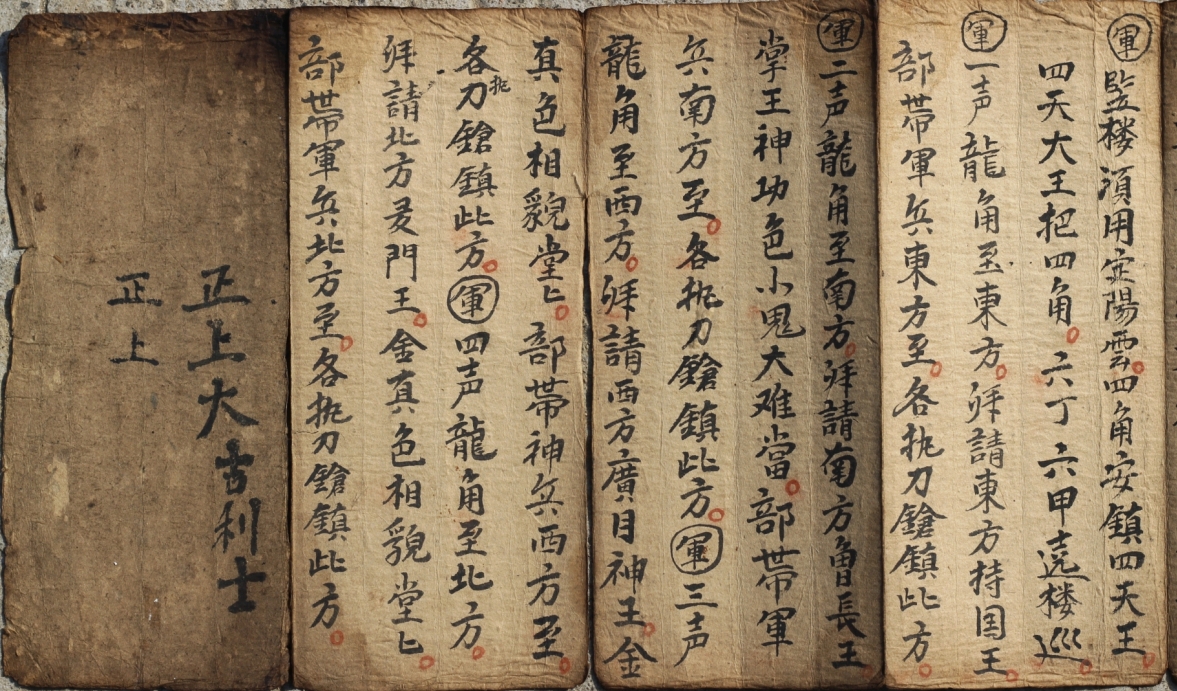 軍監楼湏用安陽雲四角安鎮四天王
四天大王把四角六丁六甲遶楼巡
軍一声龍角至東方拜請東方持国王
部带軍兵東方至各执刀鎗鎮此方
軍二声龍角至南方拜請南方曾長王
掌王神功色小鬼大难當部带軍
兵南方至各执刀鎗鎮此方軍三声
龍角至西方拜請西方廣目神王金
真色相貌堂匕部带神兵西方至
各执刀鎗鎮此方軍四声龍角至北方
拜請北方門王舍真色相貌堂匕
部带軍兵北方至各执刀鎗鎮此方
正上大吉利士
正上